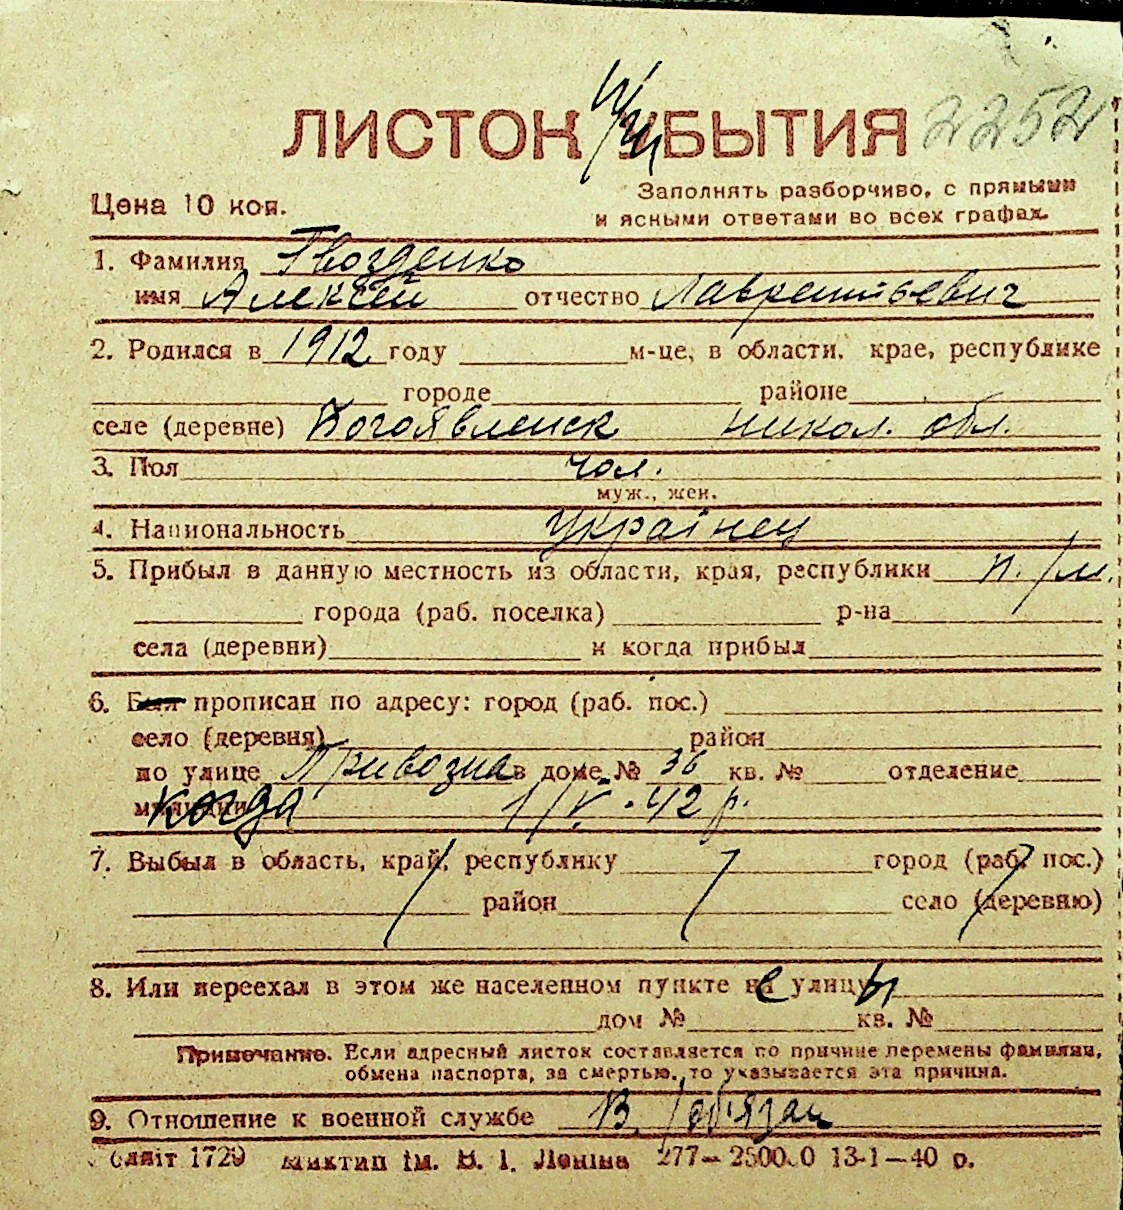 ЛИСТОК УБЫТИЯ 2252
Цена 10 коп.
Заполнять разборчиво, с прямыми
и ясными ответами во всех графах.
1. Фамилия Гвозденко
имя Алексей отчество Лаврентьевич
2. Родился в 1912 году м-це, в области, крае, республике
городе районе
селе (деревне) Богоявленск Никол. обл.
3. Пол чол.
муж., жен.
4. Национальность Українец
5. Прибыл в данную местность из области, края, республики п./м.
города (раб. поселка) р-на
села (деревни) и когда прибыл
6. Был прописан по адресу: город (раб. пос.)
село (деревня) район
по улице Привозна в доме № 36 кв. № отделение
милиции когда 1/V-42 р.
7. Выбыл в область, край, республику город (раб. пос.)
район село (деревню)
8. Или переехал в этом же населенном пункте с улицы
дом № кв. №
Примечание. Если адресный листок составляется по причине перемены фамилии,
обмена паспорта, за смертью, то указывается эта причина.
9. Отношение к военной службе В/обязан
1729 ім. В. І. Леніна 277— 13-1—40 р.